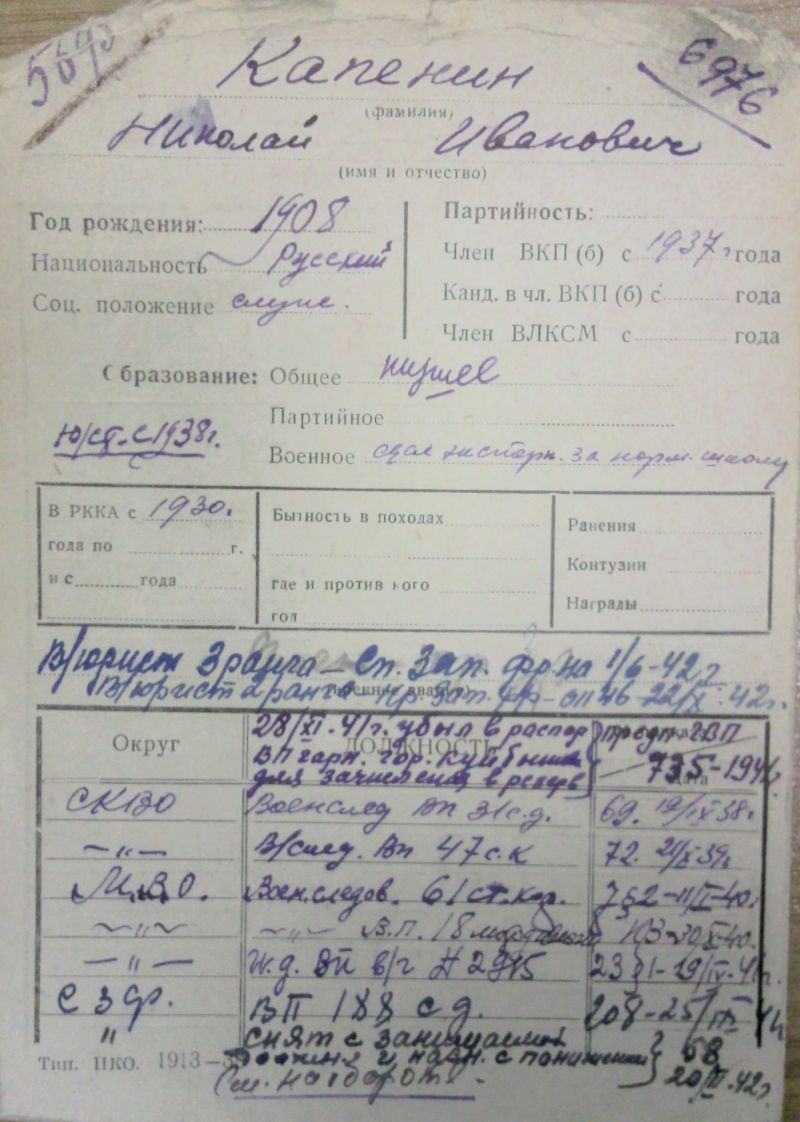 6976
Капенин
(фамилия)
Николай Иванович
(имя и отчество)
Год рождения: 1908
Национальность Русский
Соц. положение служ.
Партийность:
Член ВКП (б) с 1937 г года
Канд. в чл. ВКП (б) с года
Член ВЛКСМ с года
Образование: Общее низшее
Партийное
Военное сдал экстерн. за норм. школу
Ю/ст. с 1938 г.
В РККА с 1930 г.
года по г.
и с года
Бытность в походах
где и против кого
год
Ранения
Контузии
Награды
В/юрист 3 ранга – Сп. Зап. фр. на 1/6-42 г
В/юрист 2 ранга – пр. Зап. фр – оп 46 – 22/XI. 42 г.
Округ
ДОЛЖНОСТЬ
28/XI-41 г. убыл в распор предп. ГВП
ВП гарн. гор. Куйбышев 735-1941
для зачисления в резерв
СКВО Военслед ВП 31 с.д. 69. 19/IX 38 г.
—„— В/след. ВП 47 с.к 72. 21/X 39 г.
М.В.О. Воен.следов. 61 ст.кор.
—„— —„— В.П. 18
—„— ж.д. ВП в/г № 2915
СЗФр. ВП 188 с д. 208-25/
„ снят с занимаемой 68
должн и назн. с понижением 20/
(см. на оборот.
Тип. НКО. 1913—3